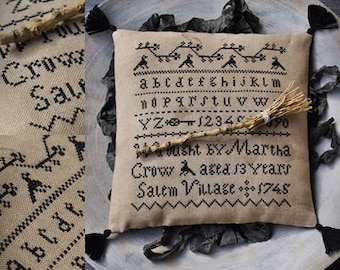 Crow
Sale
abcdt
a b c d e f g h i j k l m
n o p q r s t u v w
Y Z 1 2 3 4 5
by Martha
Crow aged 13 years
Salem Village 1745